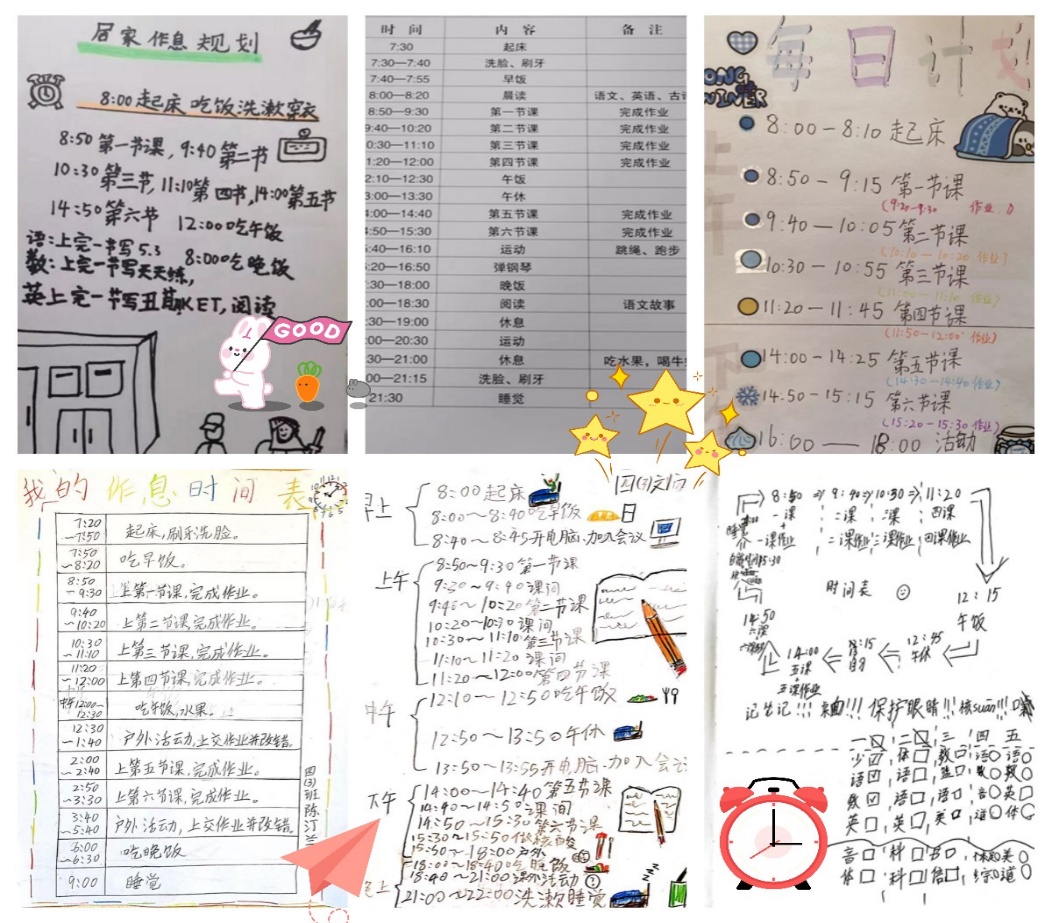 居家作息规划
8:00起床吃饭洗漱穿衣
8:50第一节课,9:40第二节
10:30第三节,11:10第四节,14:00第五节
14:50第六节 12:00吃午饭
语:上完一书写5.3 8:00吃晚饭
数:上完一节写天天练,
英上完一节写丑萌KET,阅读
GOOD
时 间 内 容 备 注
7:30 起床
7:30—7:40 洗脸、刷牙
7:40—7:55 早饭
8:00—8:20 晨读 语文、英语、古诗
8:50—9:30 第一节课 完成作业
9:40—10:20 第二节课 完成作业
0:30—11:10 第三节课 完成作业
1:20—12:00 第四节课 完成作业
2:10—12:30 午饭
3:00—13:30 午休
4:00—14:40 第五节课 完成作业
4:50—15:30 第六节课 完成作业
:40—16:10 运动 跳绳、跑步
:20—16:50 弹钢琴
:30—18:00 晚饭
:00—18:30 阅读 语文故事
:30—19:00 休息
:00—20:30 运动
:30—21:00 休息 吃水果,喝牛
00—21:15 洗脸、刷牙
21:30 睡觉
每日计划
8:00-8:10起床
8:50-9:15第一节课
(9:20-9:30 作业)
9:40-10:05第二节课
(10:10-10:20作业)
10:30-10:55第三节课
(11:00-11:10作业)
11:20-11:45第四节课
(11:50-12:00作业)
14:00-14:25第五节课
(14:30-14:40作业)
14:50-15:15第六节课
(15:20-15:30作业)
16:00—18:00活动
我的作息时间表
7:20~7:50 起床,刷牙洗脸。
7:50~8:20 吃早饭。
8:50~9:30 上第一节课,完成作业。
9:40~10:20 上第二节课,完成作业。
10:30~11:10 上第三节课,完成作业。
11:20~12:00 上第四节课,完成作业。
中午12:00~12:30 吃午饭,水果。
12:30~1:40 户外活动,上交作业并改错。
2:00~2:40 上第五节课,完成作业。
2:50~3:30 上第六节课,完成作业。
3:40~5:40 户外活动,上交作业并改错。
6:00~6:30 吃晚饭
9:00 睡觉
四(3)班陈汀兰
早上
8:00起床
8:00~8:40吃早饭
8:40~8:45开电脑,加入会议
上午
8:50~9:30第一节课
9:30~9:40课间
9:40~10:20第二节课
10:20~10:30课间
10:30~11:10第三节课
11:10~11:20课间
11:20~12:00第四节课
中午
12:10~12:50吃午饭
12:50~13:50午休
13:50~13:55开电脑,加入会议
下午
14:00~14:40第五节课
14:40~14:50课间
14:50~15:30第六节课
15:30~15:50做核酸
15:50~18:00户外
18:00~18:40吃晚饭
18:40~21:00课外活动
晚上
21:00~22:00洗漱睡觉
8:50⇒9:40⇒10:30⇒11:20
一课 二课 三课 四课
一课作业 二课作业 三课作业 四课作业
时间表
12:15
午饭
12:45
午休
14:00
五课
五课作业
14:50
六课
记笔记!!! 保护眼睛!!!
一 二 三 四 五